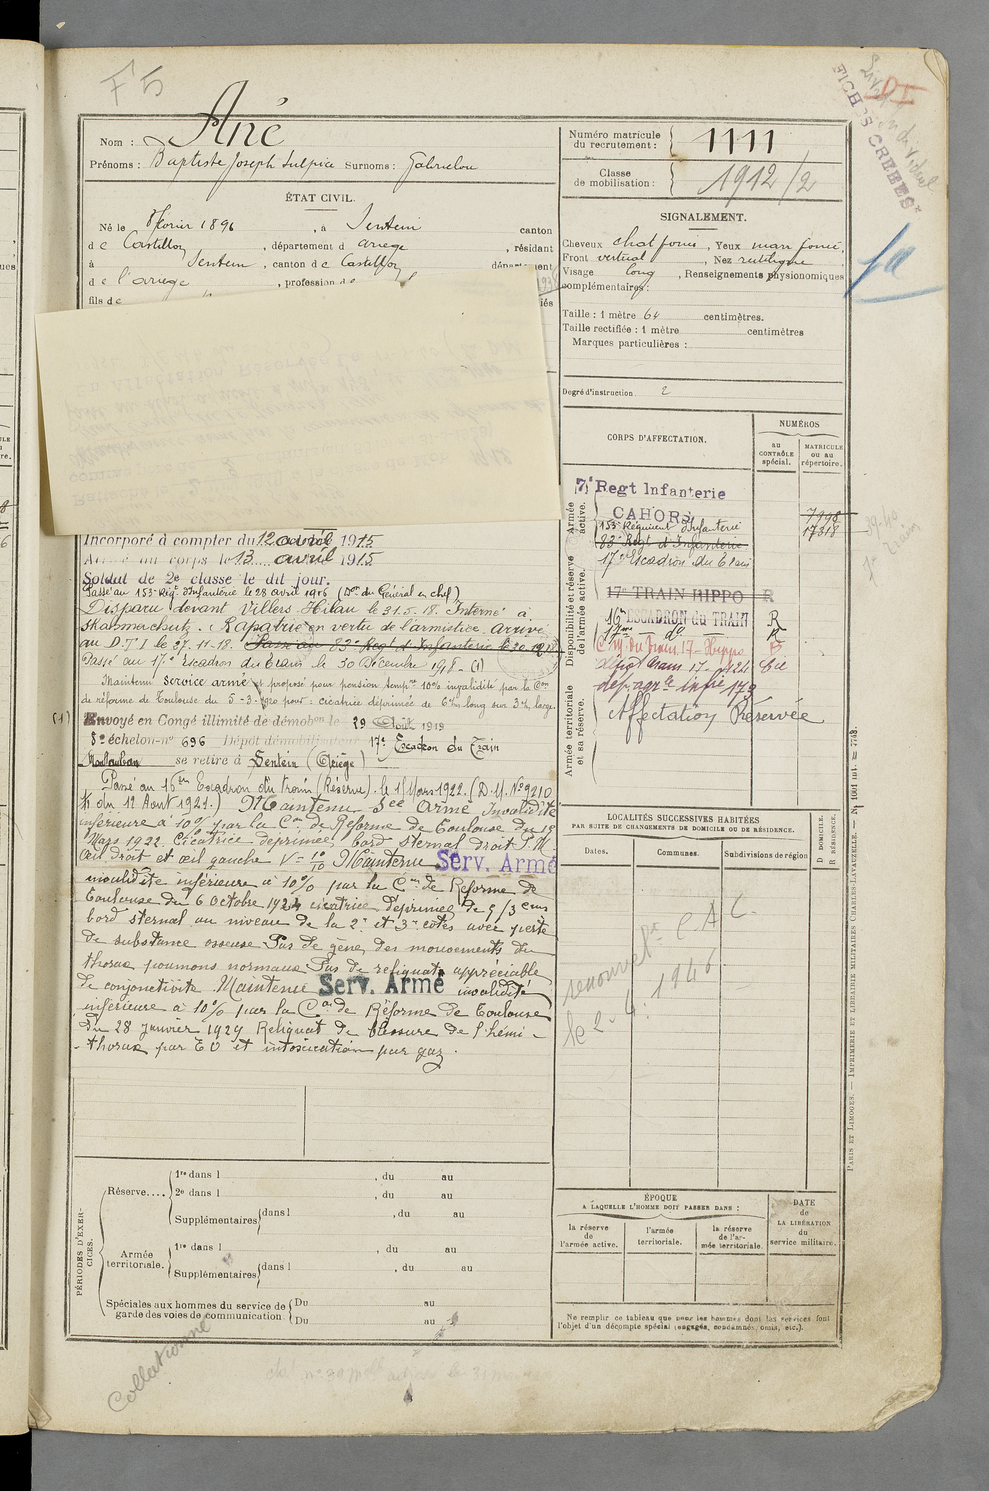 F 5
Nom : Ané
Prénoms : Baptiste Joseph Sulpice Surnoms : Gabrielou
Numéro matricule du recrutement : 1111
Classe de mobilisation : 1912/2
FICHES CRÉÉES
ÉTAT CIVIL.
Né le 8 février 1896, à Sentein canton
de Castillon, département d ariege, résidant
à Sentein, canton de Castillon département
de l'ariege, profession de
fils de
SIGNALEMENT.
Cheveux chat foncé, Yeux marr foncé,
Front vertical, Nez rectiligne
Visage long, Renseignements physionomiques
complémentaires :
Taille : 1 mètre 64 centimètres.
Taille rectifiée : 1 mètre centimètres
Marques particulières :
Degré d'instruction 2
CORPS D'AFFECTATION.
NUMÉROS
au CONTRÔLE spécial.
MATRICULE ou au répertoire.
Armée active.
7e Regt Infanterie
CAHORS
7998
153e Régiment d'Infanterie 17318
83e Regt d'Infanterie
17e Escadron du Train
Disponibilité et réserve de l'armée active.
17e TRAIN HIPPO R
16e ESCADRON du TRAIN R
do R
Cie du Train 17 Hippo B
Armée territoriale et sa réserve.
Affectation Réservée
Incorporé à compter du 12 avril 1915
Arrivé au corps le 13 avril 1915
Soldat de 2e classe le dit jour.
Passé au 153e Régt d'Infanterie le 28 avril 1916 (Don du Général en chef)
Disparu devant Villers Hélau le 31.5.18. Interné à
Skalmierschutz. Rapatrié en vertu de l'armistice. Arrivé
au D.T.I le 27.11.18. Passé au 83e Regt d'Infanterie le 20.12.18
Passé au 17e Escadron du train le 30 Décembre 1918 (1)
Maintenu service armé et proposé pour pension tempre 10% invalidité par la Con
de réforme de Toulouse du 5-3-1920 pour : cicatrice déprimée de 6c/m long sur 3c/m large
(1) Envoyé en Congé illimité de démobon le 29 Août 1919
8e échelon-no 696 Dépôt démobilisateur 17e Escadron du Train
Montauban se retire à Sentein (Ariège)
Passé au 16em Escadron du train (Réserve). le 1er Mars 1922. (D.M. No 9210
du 12 Aout 1921.) Maintenu Sce Armé Invalidité
inférieure à 10% par la Con de Réforme de Toulouse du 18
Mars 1922. Cicatrice déprimée bord Sternal droit P.M.
Œil droit et œil gauche V = 10/10 Maintenu Serv. Armé
invalidité inférieure à 10% par la Con de Réforme de
Toulouse du 6 Octobre 1924 cicatrice déprimée de 5/3 cms
bord sternal au niveau de la 2e et 3e cotes avec perte
de substance osseuse Pas de gêne des mouvements du
thorax poumons normaux Pas de reliquat appréciable
de conjonctivite. Maintenu Serv. Armé invalidité
inférieure à 10% par la Con de Réforme de Toulouse
du 28 Janvier 1929 Reliquat de blessure de l'hémi-
-thorax par E O et intoxication par gaz.
LOCALITÉS SUCCESSIVES HABITÉES
PAR SUITE DE CHANGEMENTS DE DOMICILE OU DE RÉSIDENCE.
Dates.
Communes.
Subdivisions de région
D DOMICILE.
R RÉSIDENCE.
C A C.
le 2. 4. 1946
PÉRIODES D'EXERCICES.
Réserve.... 1re dans l , du au
2e dans l , du au
Supplémentaires dans l , du au
Armée territoriale. 1re dans l , du au
Supplémentaires dans l , du au
Spéciales aux hommes du service de garde des voies de communication : Du au
Du au
ÉPOQUE
A LAQUELLE L'HOMME DOIT PASSER DANS :
la réserve de l'armée active.
l'armée territoriale.
la réserve de l'armée territoriale.
DATE de LA LIBÉRATION du service militaire.
Ne remplir ce tableau que pour les hommes dont les services font
l'objet d'un décompte spécial (engagés, condamnés, omis, etc.).
PARIS ET LIMOGES. — IMPRIMERIE ET LIBRAIRIE MILITAIRES CHARLES-LAVAUZELLE. —
Collationné